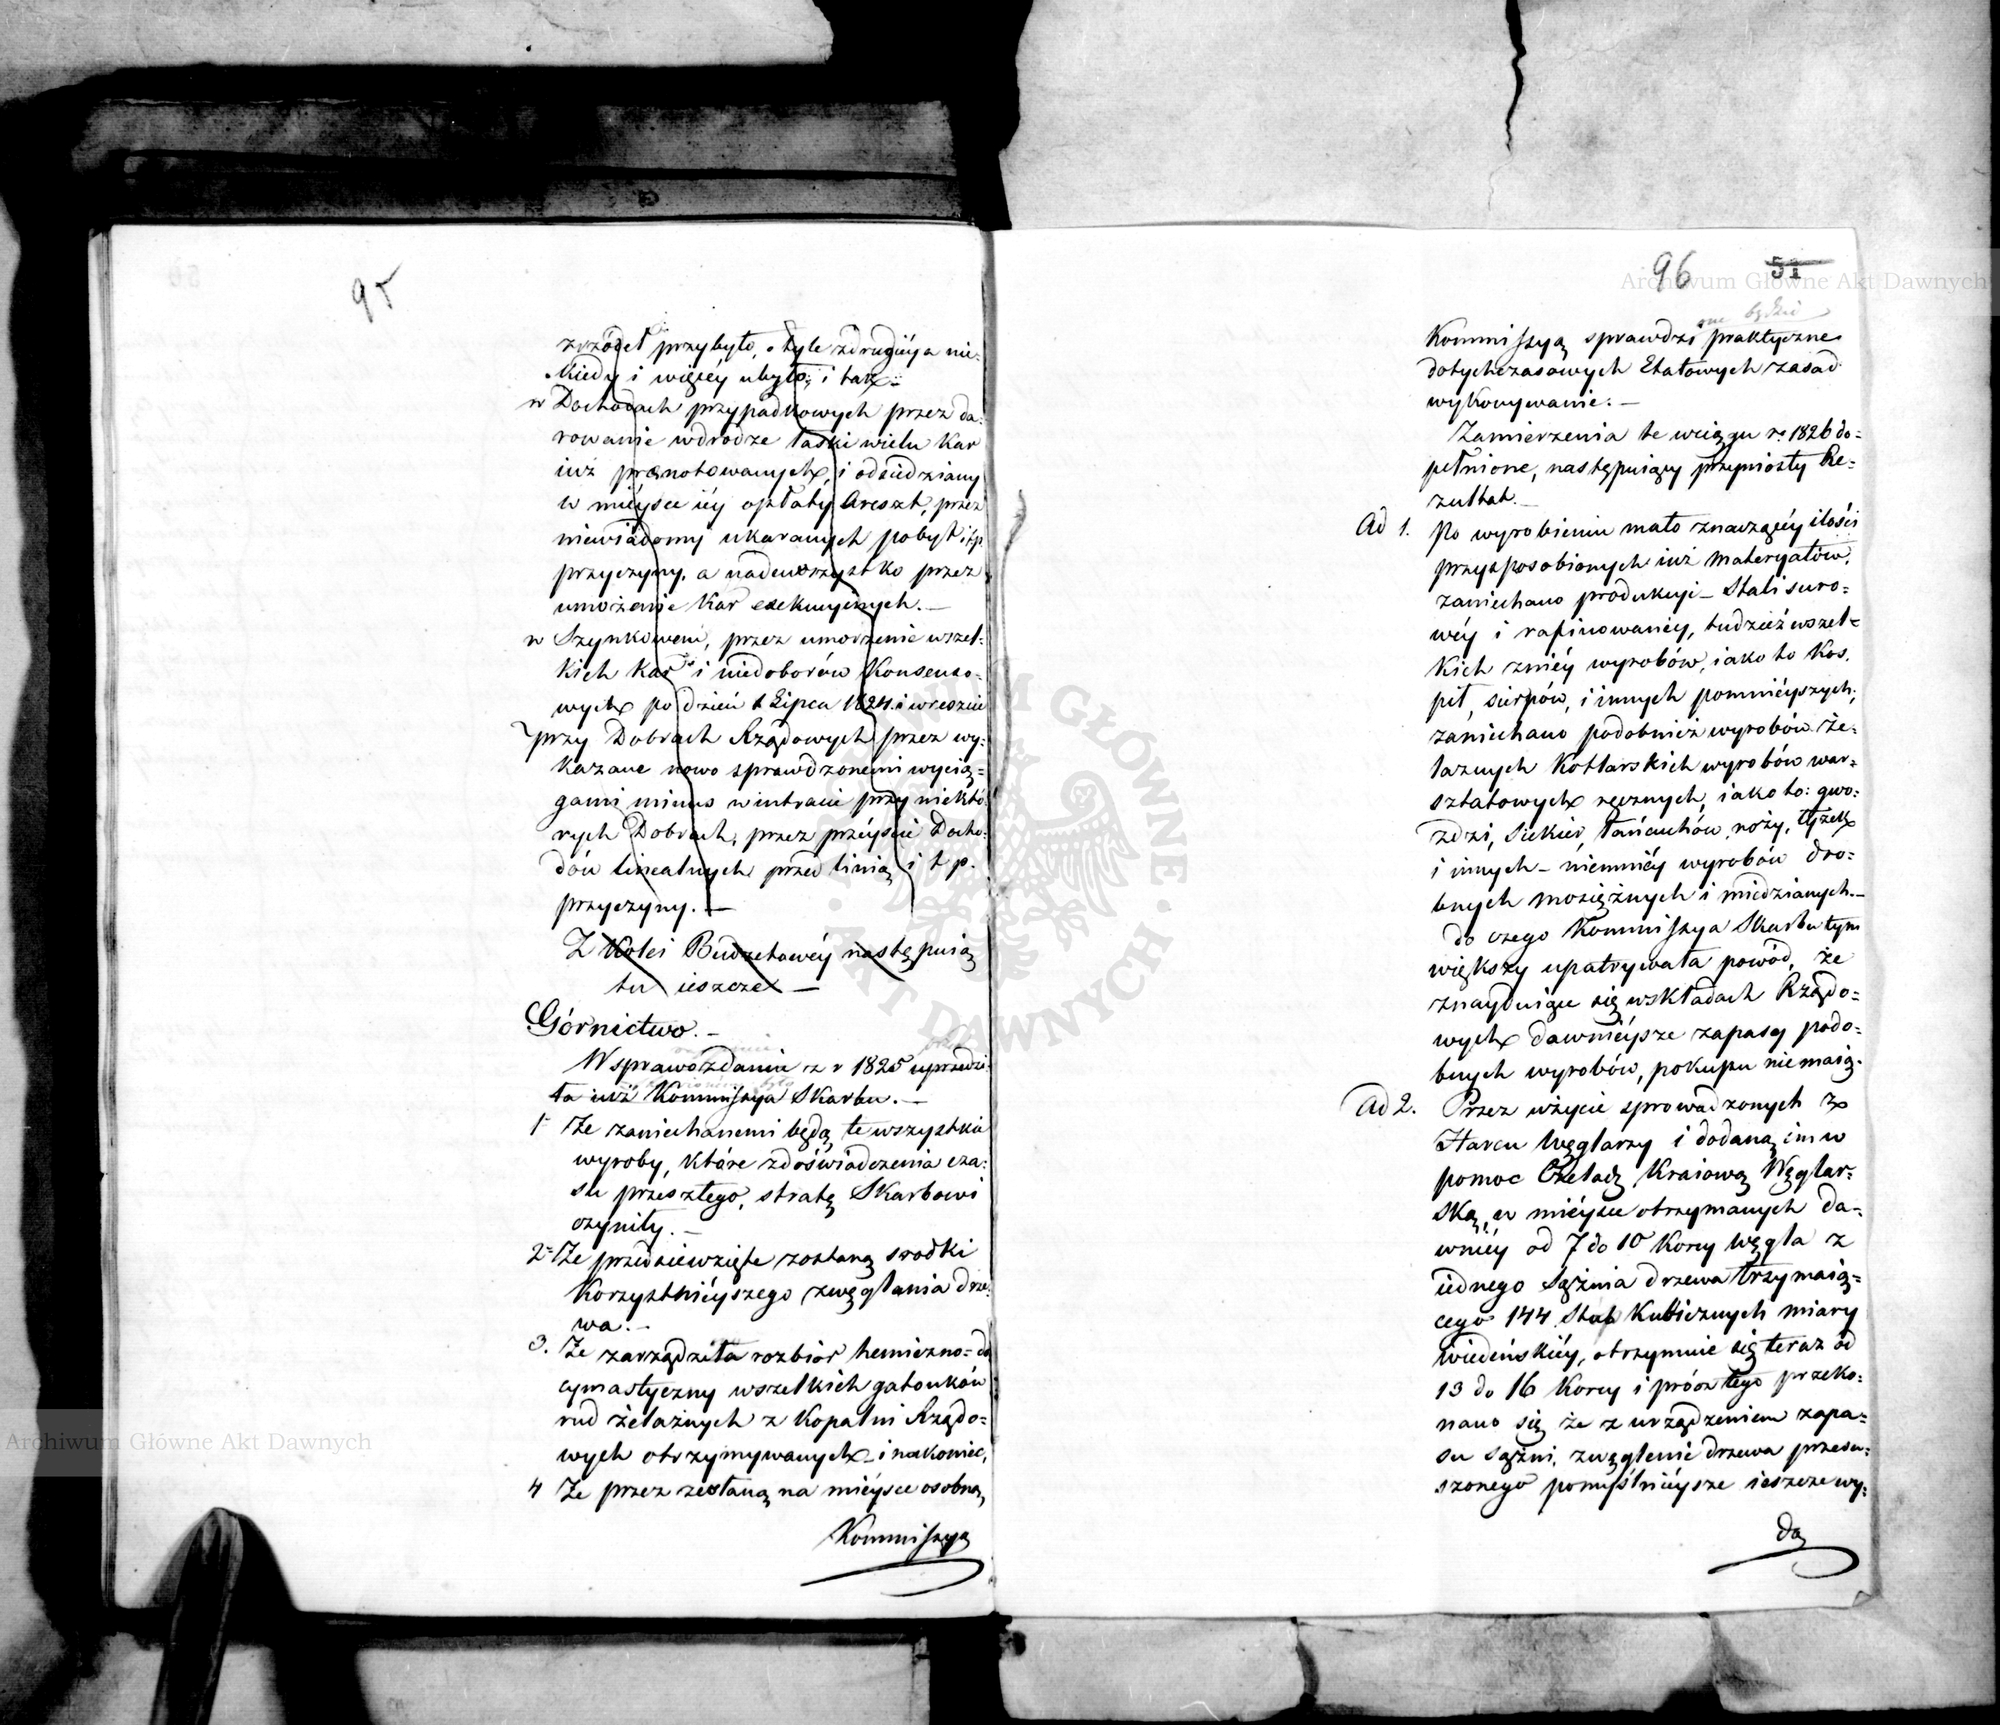 95
zrzódeł przybyło, o tyle z drugiéy a nie-
kiedy i więcéy ubyło; i tak:
w Dochodach przypadkowych przez da-
rowanie w drodze łaski wielu kar
iuż prænotowanych, i odsiedziany
w mieysce iéy opłaty Areszt, przez
niewiadomy ukaranych pobyt i t.p.
przyczyny, a nadewszystko przez
umorzenie kar exekucyinych.—
w Szynkowem, przez umorzenie wszel-
kich kar i niedoborów Konsenso-
wych po dzień 1 Lipca 1824. i wreszcie
przy Dobrach Rządowych przez wy-
kazane nowo sprawdzonemi wycią-
gami minus w intracie przy niektó-
rych Dobrach, przez przéyscie Docho-
dów linealnych przed linią i t p.
przyczyny.—
Z kolei Budżetowéy następuią
tu ieszcze —
Górnictwo.—
W sprawozdaniu z r 1825 uprzedzi-
ła iuż Kommissya Skarbu.—
1 Że zaniechanemi będą te wszystkie
wyroby, które z doświadczenia cza-
su przeszłego, stratę Skarbowi
czyniły.—
2 Że przedsiewzięte zostaną srodki
korzystniéyszego zwęglania drze-
wa.—
3. Że zarządziła rozbiór hemiczno-do
cymastyczny wszelkich gatunków
rud żelaznych z Kopalni Rządo-
wych otrzymywanych i nakoniec,
4 Że przez zesłaną na mieysce osobną
Kommissyą
96 51
one będzie
Kommissyą sprawdzi praktyczne
dotychczasowych Etatowych zasad
wykonywanie.—
Zamierzenia te w ciągu r. 1826 do-
pełnione, następuiący przyniosły Re-
zultat.—
Ad 1. Po wyrobieniu mało znaczącéy ilości
przysposobionych iuż materyałów,
zaniechano produkcyi Stali suro-
wéy i rafinowanéy, tudzież wszel-
kich z niéy wyrobów, iako to Kos,
pił, sierpów, i innych pomniéyszych;
zaniechano podobnież wyrobów że-
laznych Kotlarskich wyrobów war-
sztatowych ręcznych, iako to: gwo-
zdzi, Siekier, łańcuchów, noży, łyżek
i innych – niemniéy wyrobów dro-
bnych mosiężnych i miedzianych.—
do czego Kommissya Skarbu tym
większy upatrywała powód, że
znayduiące się w składach Rządo-
wych dawniéysze zapasy podo-
bnych wyrobów, pokupu nie maią.
Ad 2. Przez użycie sprowadzonych z
Harcu Węglarzy i dodaną im w
pomoc Czeladź Kraiową Węglar-
ską, w miéysce otrzymanych da-
wniéy od 7 do 10 Korcy węgla z
iednego Sążnia drzewa trzymaią-
cego 144 Stop Kubicznych miary
wiedeńskiéy, otrzymuie się teraz od
13 do 16 Korcy i prócz tego przeko-
nano się że z urządzeniem zapa-
su sążni, zwęglenie drzewa przesu-
szonego pomyślniéysze ieszcze wy-
da
Archiwum Główne Akt Dawnych
Archiwum Główne Akt Dawnych